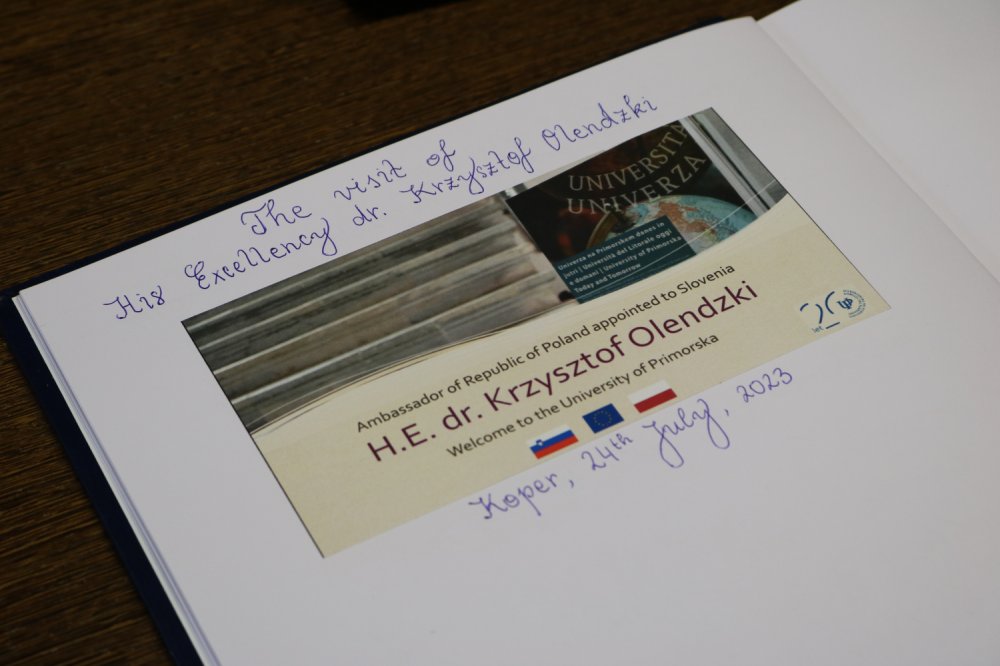 The visit of
His Excellency dr. Krzysztof Olendzki
UNIVERSITÀ
UNIVERZA
Univerza na Primorskem danes in
jutri | Università del Litorale oggi
e domani | University of Primorska
Today and Tomorrow
Ambassador of Republic of Poland appointed to Slovenia
H.E. dr. Krzysztof Olendzki
Welcome to the University of Primorska
20
let
Koper, 24th July, 2023